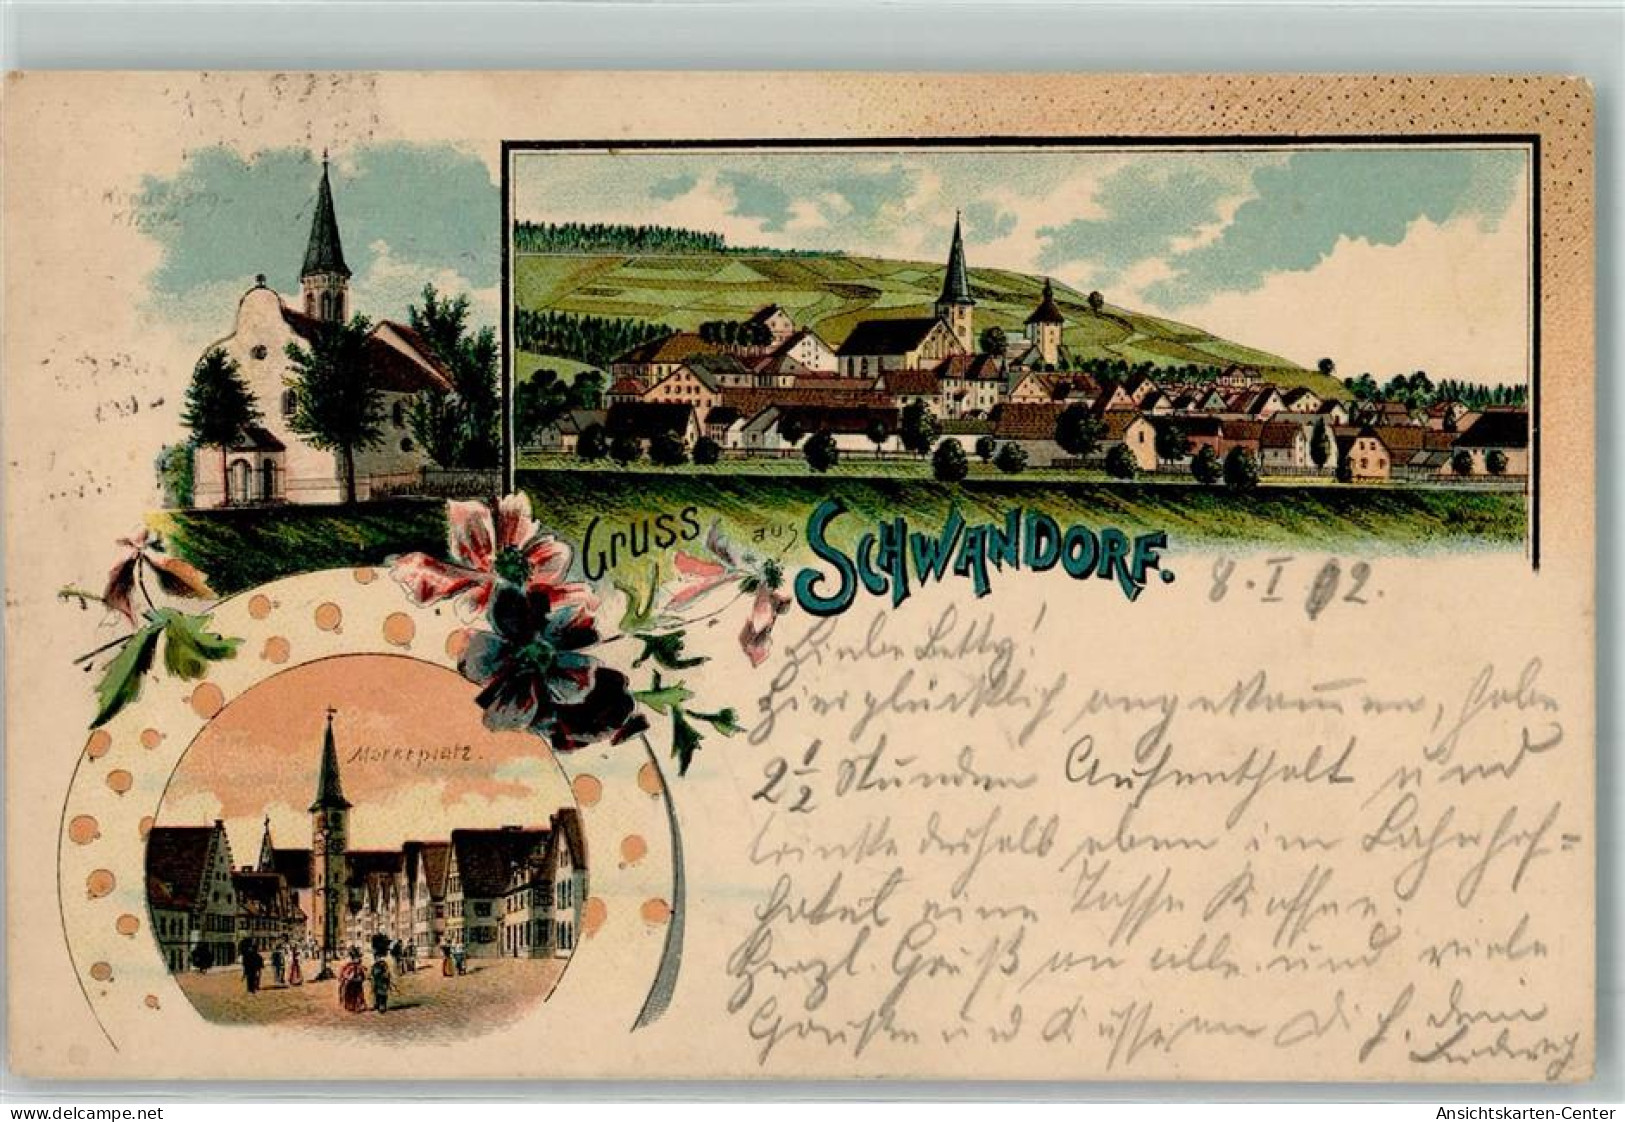 Kreuzberg-
Kirche.
Gruss aus SCHWANDORF.
8. I 02.
Liebe Betty!
Hier glücklich angekommen, habe
2 1/2 Stunden Aufenthalt und
trinke deshalb eben im Bahnhof=
hotel eine Tasse Kaffee.
Herzl. Gruß an alle und viele
Grüße und Küsse an Dich. dein
Ludwig
Marktplatz.
delcampe.net
Ansichtskarten-Center